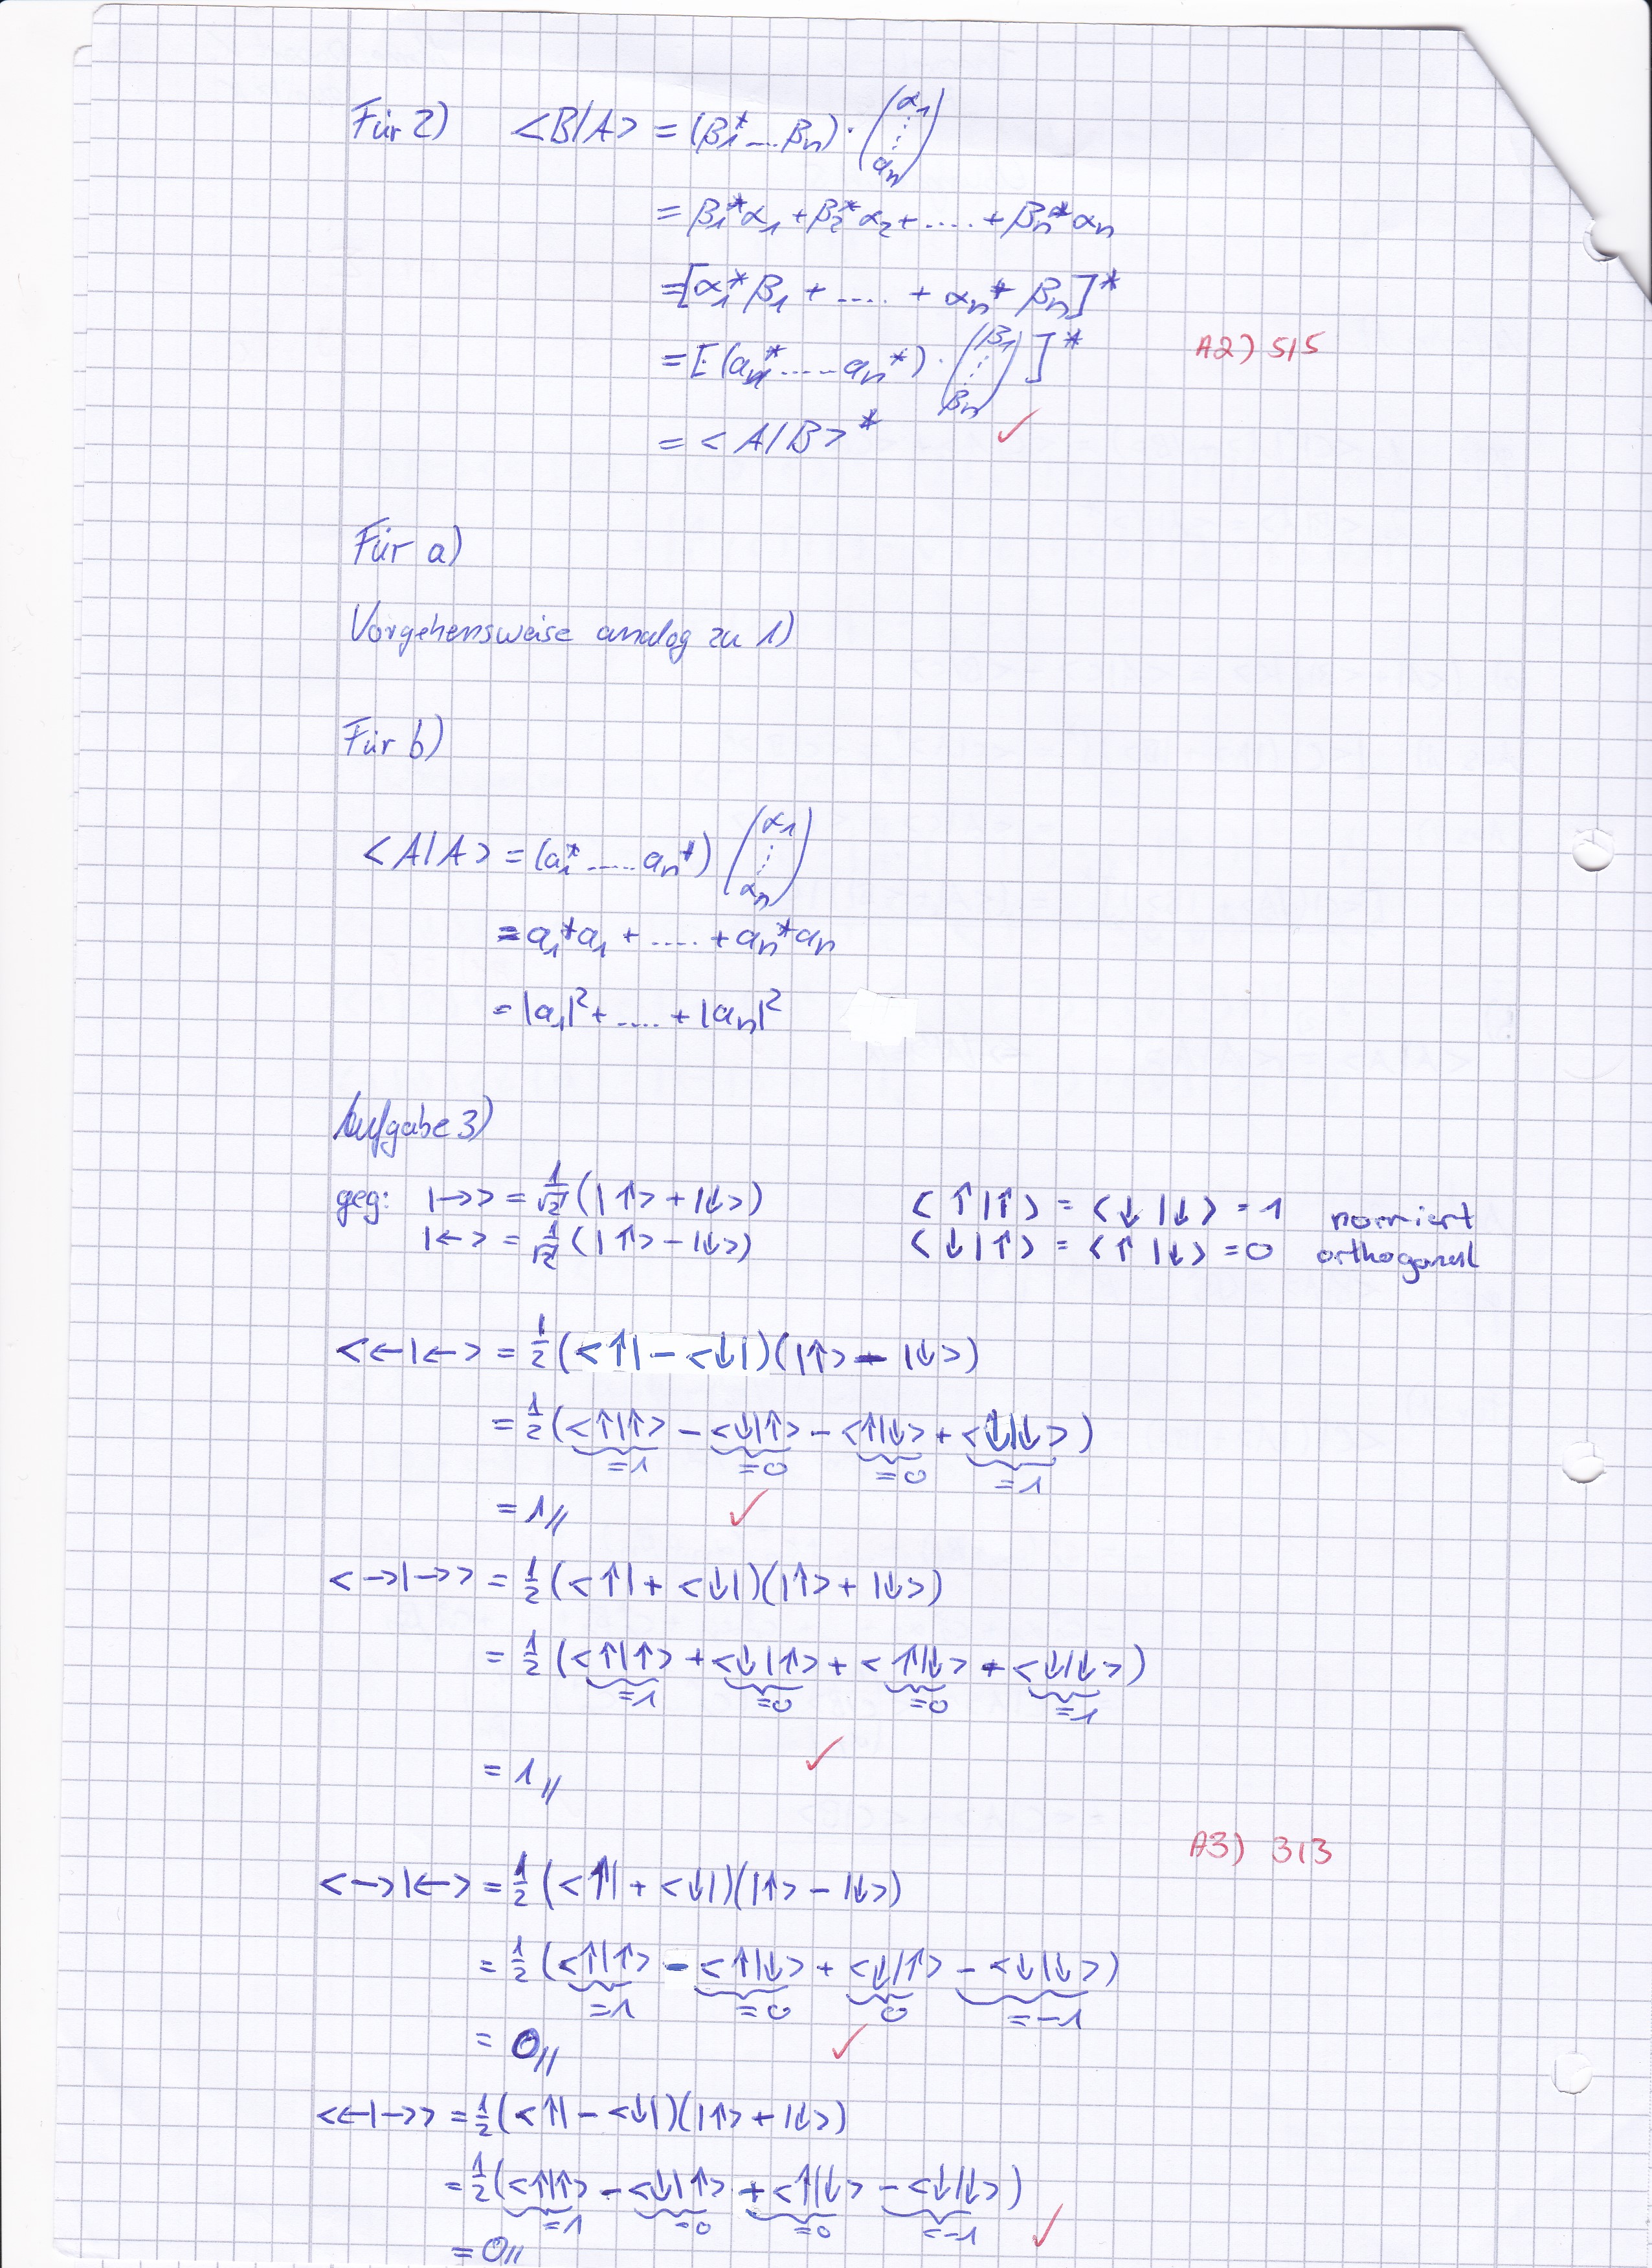 Für 2) <B|A> = (β₁* ... βₙ) · (α₁ ⋮ αₙ)
= β₁*α₁ + β₂*α₂ + ..... + βₙ*αₙ
= [α₁*β₁ + ..... + αₙ* βₙ]*
= [(a₁* ..... aₙ*) · (β₁ ⋮ βₙ)]* A2) 5/5
= <A|B>* ✓
Für a)
Vorgehensweise analog zu 1)
Für b)
<A|A> = (a₁* ..... aₙ*) (α₁ ⋮ αₙ)
= a₁*a₁ + ..... + aₙ*aₙ
= |a₁|² + ..... + |aₙ|²
Aufgabe 3)
geg: |→> = 1/√2 (|↑> + |↓>) <↑|↑> = <↓|↓> = 1 normiert
|←> = 1/√2 (|↑> - |↓>) <↓|↑> = <↑|↓> = 0 orthogonal
<←|←> = 1/2 (<↑| - <↓|)(|↑> - |↓>)
= 1/2 (<↑|↑> - <↓|↑> - <↑|↓> + <↓|↓>)
=1 =0 =0 =1
= 1// ✓
<→|→> = 1/2 (<↑| + <↓|)(|↑> + |↓>)
= 1/2 (<↑|↑> + <↓|↑> + <↑|↓> + <↓|↓>)
=1 =0 =0 =1
= 1// ✓
A3) 3/3
<→|←> = 1/2 (<↑| + <↓|)(|↑> - |↓>)
= 1/2 (<↑|↑> - <↑|↓> + <↓|↑> - <↓|↓>)
=1 =0 0 =-1
= 0// ✓
<←|→> = 1/2 (<↑| - <↓|)(|↑> + |↓>)
= 1/2 (<↑|↑> - <↓|↑> + <↑|↓> - <↓|↓>)
=1 =0 =0 =-1 ✓
= 0//